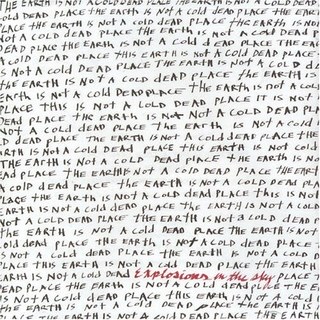 THE EARTH IS NOT A COLD DEAD PLACE THE EARTH IS NOT A COLD DEAD
NOT A COLD DEAD PLACE THE EARTH IS NOT A COLD DEAD PLACE THE EARTH
PLACE THE EARTH IS NOT A COLD DEAD PLACE THE EARTH IS NOT
A COLD DEAD PLACE THE EARTH IS NOT A COLD DEAD
DEAD PLACE THE EARTH IS NOT A COLD DEAD PLACE THE EAR
A COLD DEAD PLACE THIS EARTH IS NOT A COLD DEAD PLACE
IS NOT A COLD DEAD PLACE THE EARTH IS NOT A COLD DE
THE EARTH IS NOT A COLD DEAD PLACE THE EARTH IS NOT
EARTH IS NOT A COLD DEAD PLACE THE EARTH IS NOT A COLD
PLACE THIS EARTH IS NOT A COLD DEAD PLACE IT IS NOT
DEAD PLACE THE EARTH IS NOT A COLD DEAD PLACE THE EARTH
NOT A COLD DEAD PLACE THE EARTH IS NOT A COLD DEAD
D DEAD PLACE THE EARTH IS NOT A COLD DEAD PLACE THE
RTH IS NOT A COLD DEAD PLACE THIS EARTH IS NOT COLD
THE EARTH IS NOT A COLD DEAD PLACE THE EARTH IS NOT
DEAD PLACE THE EARTH IS NOT A COLD DEAD PLACE THE EART
A COLD DEAD PLACE THE EARTH IS NOT A COLD DEAD PLA
PLACE THE EARTH IS NOT A COLD DEAD PLACE THIS EART
EARTH IS NOT A COLD DEAD PLACE THE EARTH IS NOT A COLD
NOT A COLD DEAD PLACE THE EARTH IS NOT A COLD DEAD
THE EARTH IS NOT A COLD DEAD PLACE THE EARTH IS
COLD DEAD PLACE THE EARTH IS NOT A COLD DEAD PLACE
IS NOT COLD DEAD PLACE THE EARTH IS NOT A COLD DEAD
PLACE THIS EARTH IS NOT A COLD DEAD PLACE THE EARTH
EARTH IS NOT A COLD DEAD Explosions in the Sky PLACE T
DEAD PLACE THE EARTH IS NOT A COLD DEAD PLACE THE E
IS NOT A COLD DEAD PLACE THIS EARTH IS NOT A COLD D
THE EARTH IS NOT A COLD DEAD PLACE THE EARTH IS
NOT A COLD DEAD PLACE THE EARTH IS NOT A COLD DEAD